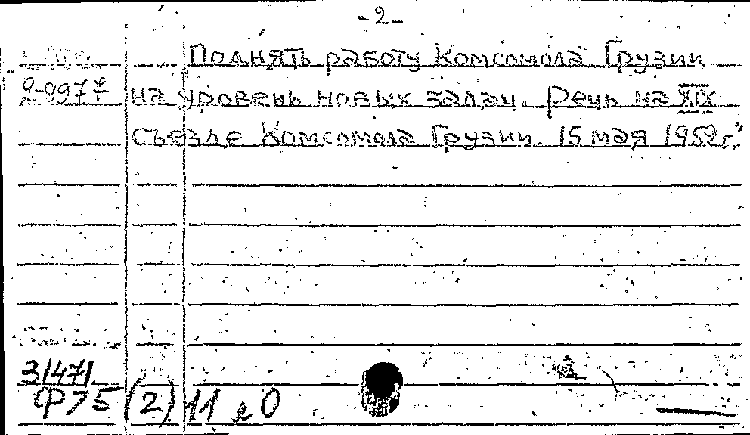 -2-
Поднять работу Комсомола Грузии
на уровень новых задач. Речь на XIX
съезде Комсомола Грузии. 15 мая 1952 г."
31471
Ф75 (2) 11